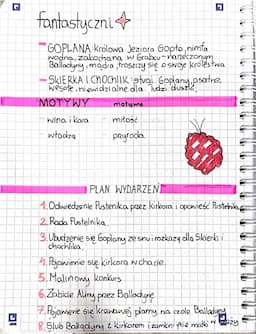 fantastyczni
- GOPLANA: królowa Jeziora Gopło, nimfa
wodna, zakochana w Grabcu - narzeczonym
Balladyny, mądra, troszczy się o swoje królestwo
- SKIERKA I CHOCHLIK: słudzy Goplany, psotne,
wesołe, niewidzialne dla ludzi duszki,
MOTYWY motywy
- wina i kara - miłość
- władza - przyroda
PLAN WYDARZEŃ
1. Odwiedzenie Pustelnika przez Kirkora i opowieść Pustelnika
2. Rada Pustelnika.
3. Zbudzenie się Goplany ze snu i rozkazy dla Skierki i
chochlika.
4. Pojawienie się Kirkora w chacie.
5. Malinowy konkurs
6. Zabicie Aliny przez Balladynę
7. Pojawienie się krwawej plamy na czole Balladyny
8. Ślub Balladyny z Kirkorem i zamknięcie matki w